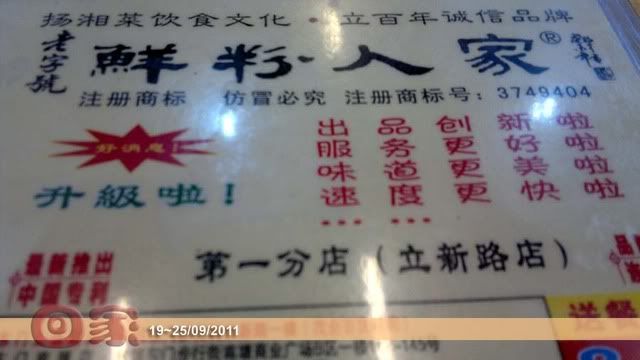 扬湘菜饮食文化·立百年诚信品牌
老字號
鮮粉人家®
注册商标 仿冒必究 注册商标号：3749404
好消息！
升級啦！
出品创新啦
服务更好啦
味道更美啦
速度更快啦
... ...
第一分店（立新路店）
最新推出
中国专利
送餐
回家
19~25/09/2011